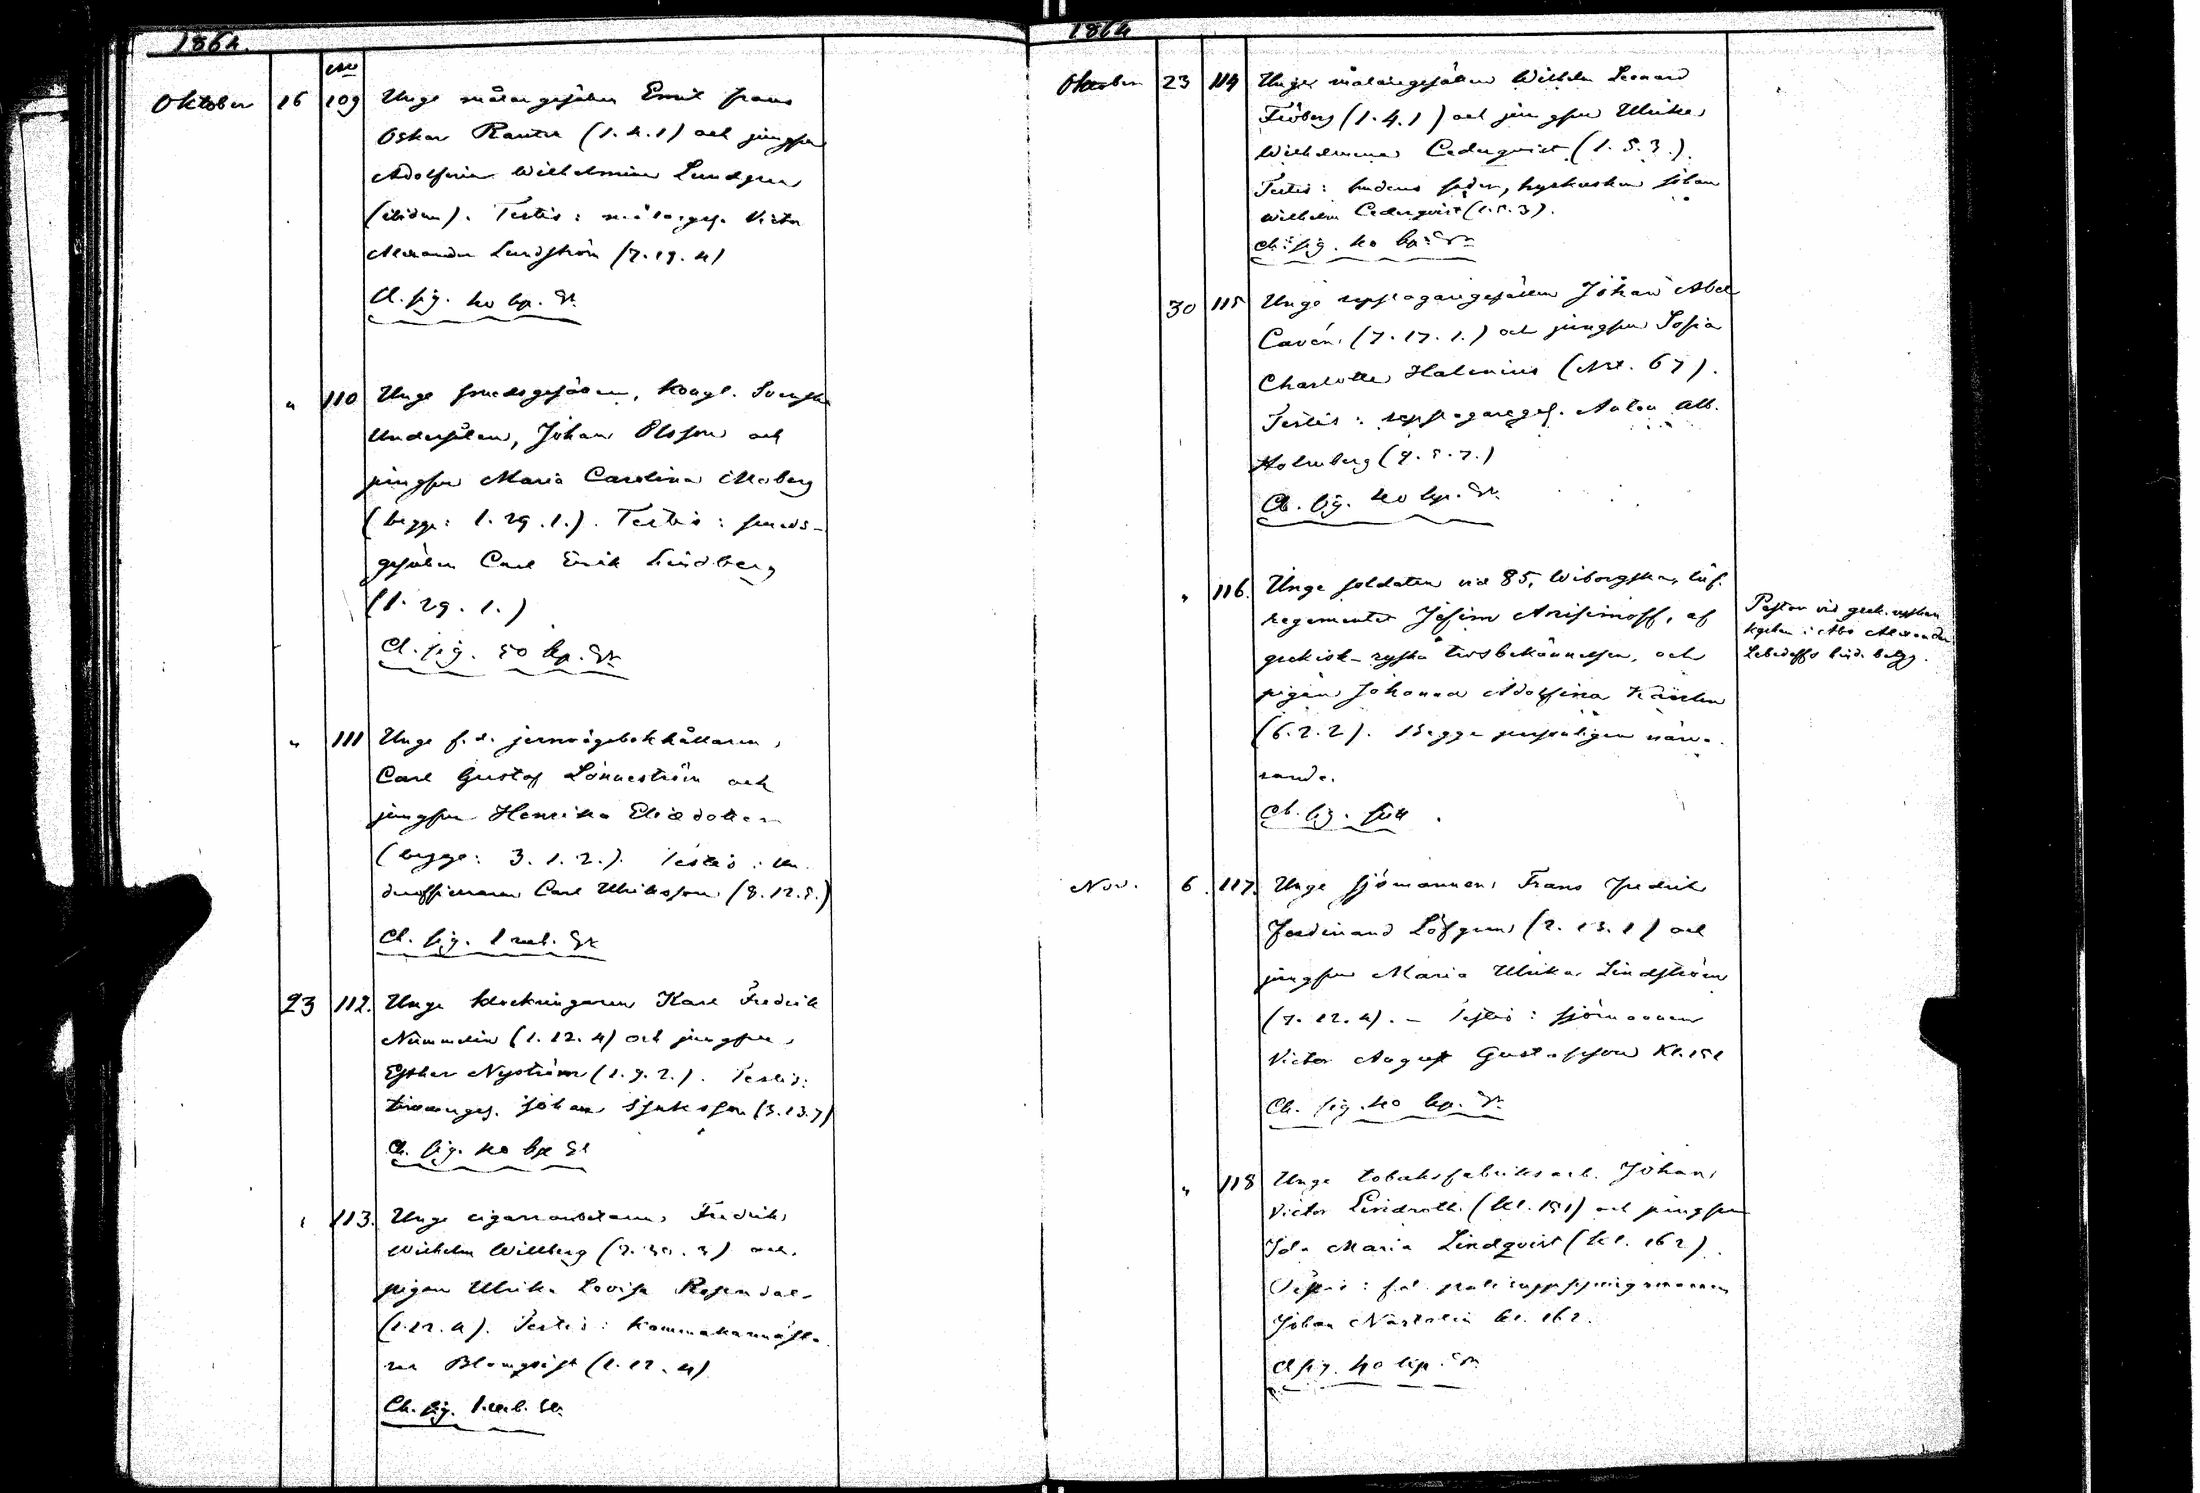 1864.
No
Oktober 16 109 Unge målaregesällen Emil Frans
Oskar Rautia (1.4.1) och jungfru
Adolfina Wilhelmina Lundgren
(ibidem). Testis: målareges. Victor
Alexander Lundström (7.19.4)
Ch. sig. 40 kp. Sr.
" 110 Unge smedsgesällen, Kongl. Svenske
Undersåten, Johan Olsson och
jungfru Maria Carolina Moberg
(begge: 1.29.1.). Testis: smeds-
gesällen Carl Erik Lindberg
(1.29.1.)
Ch. sig. 50 kp. Sr.
" 111 Unge f.d. jernvågsbokhållaren,
Carl Gustaf Lönneström och
jungfru Henrika Eliædotter
(begge: 3.1.2.). Testis: un-
derofficeraren Carl Ulriksson (8.12.5.)
Ch. sig. 1 rub. Sr.
23 112. Unge klockringaren Karl Fredrik
Nummelin (1.12.4) och jungfru
Esther Nyström (1.9.2.). Testis:
Johan (3.13.7)
Ch. sig. 40 kp Sr
" 113. Unge cigarrarbetaren Fredrik
Wilhelm Willberg och
pigan Ulrika Lovisa Rosendal
(1.12.4). Testis: Kammakaremästa-
ren Blomqvist (1.12.4)
Ch. sig. 1 rub. Sr.
1864
Oktober 23 114 Unge målaregesällen Wilhelm Leonard
Fröberg (1.4.1) och jungfru Ulrika
Wilhelmina Cederqvist (1.5.3.).
Testis: brudens fader, hyrkusken Johan
Wilhelm Cederqvist (1.5.3).
Ch. sig. 40 kp. Sr.
30 115 Unge repslagaregesällen Johan Abel
Cavén (7.17.1.) och jungfru Sofia
Charlotta Halenius (Nrt. 67).
Testis: repslagareges. Anton Alb.
Holmberg (9.5.7.)
Ch. sig. 40 kp. Sr.
" 116. Unge soldaten vid 85, Wiborgska, inf.
regementet Jefim Anisimoff, af
grekisk-ryska trosbekännelsen, och
pigan Johanna Adolfina
(6.2.2). Begge personligen närva-
rande.
Ch. sig.
Pastor vid grek. ryska
kyrkan i Åbo Alexander
Lebedeffs
Nov. 6. 117. Unge sjömannen Frans Fredrik
Ferdinand Löfgren (2.13.1) och
jungfru Maria Ulrika Lindström
(7.12.4). – Testis: sjömannen
Victor August Gustafsson Kl. 151
Ch. sig. 40 kp. Sr.
" 118 Unge tobaksfabriksarb. Johan
Victor Lindroth (kl. 151) och jungfru
Ida Maria Lindqvist (kl. 162).
Testis: f.d. polisuppsyningsmannen
Johan kl. 162.
Ch sig. 40 kp. Sr.